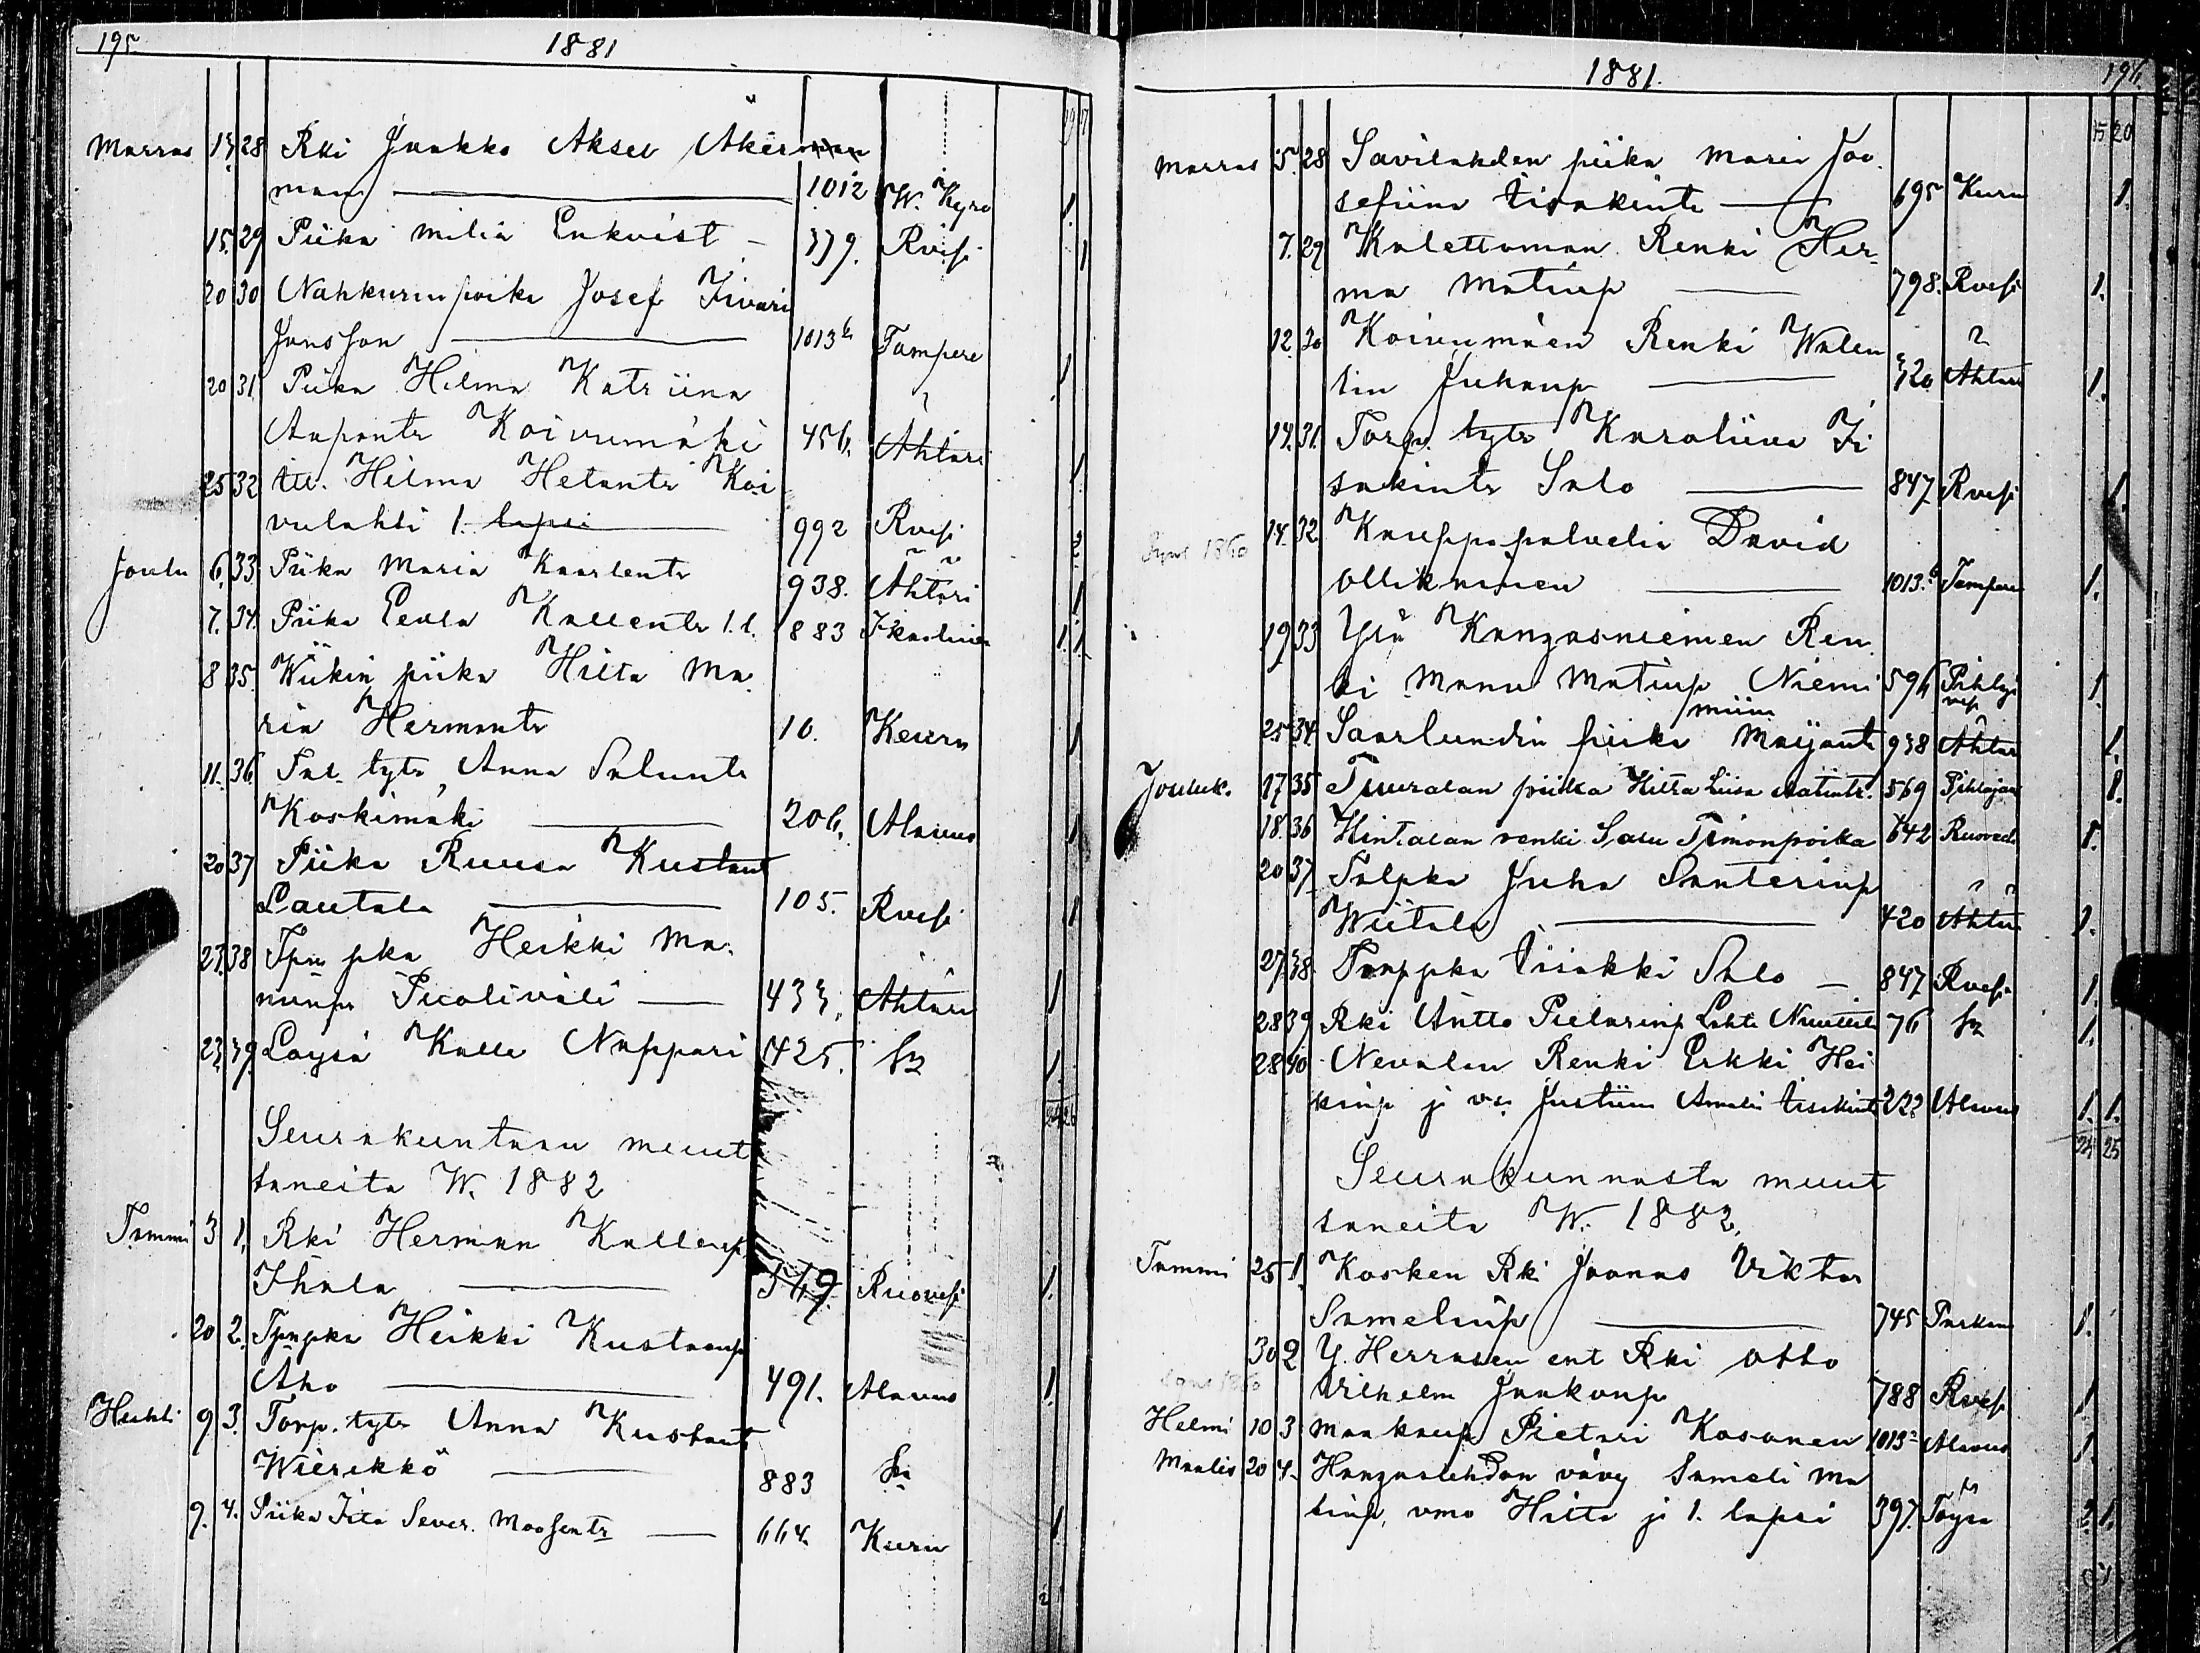 195.
1881
Marras 13 28 Rki Jaakko Aksel Åker
man 1012 W. Kyrö 1.
15. 29 Piika Milia Enkvist 339. Rvesi 1
20 30 Nahkurin poika Josef Iivari
Jansson 1013 b Tampere 1
20 31. Piika Hilma Katriina
Aapontr Koivumäki 456. Ähtäri 1
25 32 itl. Hilma Hetantr Koi
vulahti 1. lapsi 992 Rvesi 2.
Joulu 6. 33 Piika Maria Kaarlentr 938. Ähtäri 1.
7. 34. Piika Eeva Kallentr 1. l. 883 Ikaalinen 1. 1.
8 35. Wiikin piika Hilta Ma
ria Hermantr 10. Keuru 1
11. 36 Tal. tytr Anna Saluntr
Koskimäki 206. Alavus 1
20 37 Piika Ruusa Kustaant
Lautala 105. Rvesi 1
23. 38 Tpn pka Heikki Ma
nunp. Puoliväli 433. Ähtäri 1
23. 39 Loysä Kalle Nappari 425. 1.
24 26
Seurakuntaan muut
taneita W. 1882
Tammi 3 1. Rki Herman Kallenp
Ihala 569 Ruovesi 1.
20 2. Tpnpka Heikki Kustaanp
Aho 491. Alavus 1.
Helmi 9 3. Torp. tytr Anna Kustant
Wierikkö 883
9. 4. Piika Iita Sever. Moosentr 664. Kuru 1
1881.
196.
15 20
Marras 5. 28 Savilahden piika Maria Joo
sefiina Iisakintr 695 Kuru 1.
7. 29 Kalettoman Renki Her
ma Matinp 798. Rvesi 1.
12. 30 Koivumäen Renki Walen
tin Juhanp 320 Ähtäri 1.
14. 31. Torp. tytr Karoliina Ii
sakintr Salo 847 Rvesi 1.
14. 32 Kauppapalvelia David
Ollikainen 1013. b Tampere 1.
19 33 Ylä Kangasniemen Ren
ki Manu Matinp Niemi 596 Pihlaja
vesi 1.
miina
25 34. Saarlundin piika Maijantr 938 Ähtäri 1.
Jouluk. 17 35 Tuuralan piika Hilta Liisa Matintr. 569 Pihlajav 1.
18. 36 Hintalan renki Salu Simonpoika 642 Ruovesi 1.
20 37 Talpka Juha Santerinp
Wiitala 420 Ähtäri 1.
27 38. Torppka Iisakki Salo 847 Rvesi 1.
28 39 Rki Antto Pietarinp Lahti 76 1.
28 40 Nevalan Renki Erkki Hei
kinp ja va. Justiina Amalia Iisakint 222 Alavus 1. 1.
24 25
Seurakunnasta muut
taneita W. 1882.
Tammi 25 1. Kosken Rki Joonas Viktor
Samelinp 745 Parkano 1.
30 2 Y. Herrasen ent Rki Otto
Vilhelm Jaakonp 788 Rvesi 1.
Helmi 10 3 Maakaup Pietari Kosonen 1013 a Alavus 1.
Maalis 20 4. Hangaslahdan vävy Sameli Ma
tinp, vmo Hilta ja 1. lapsi 397. Töysä 2. 1.